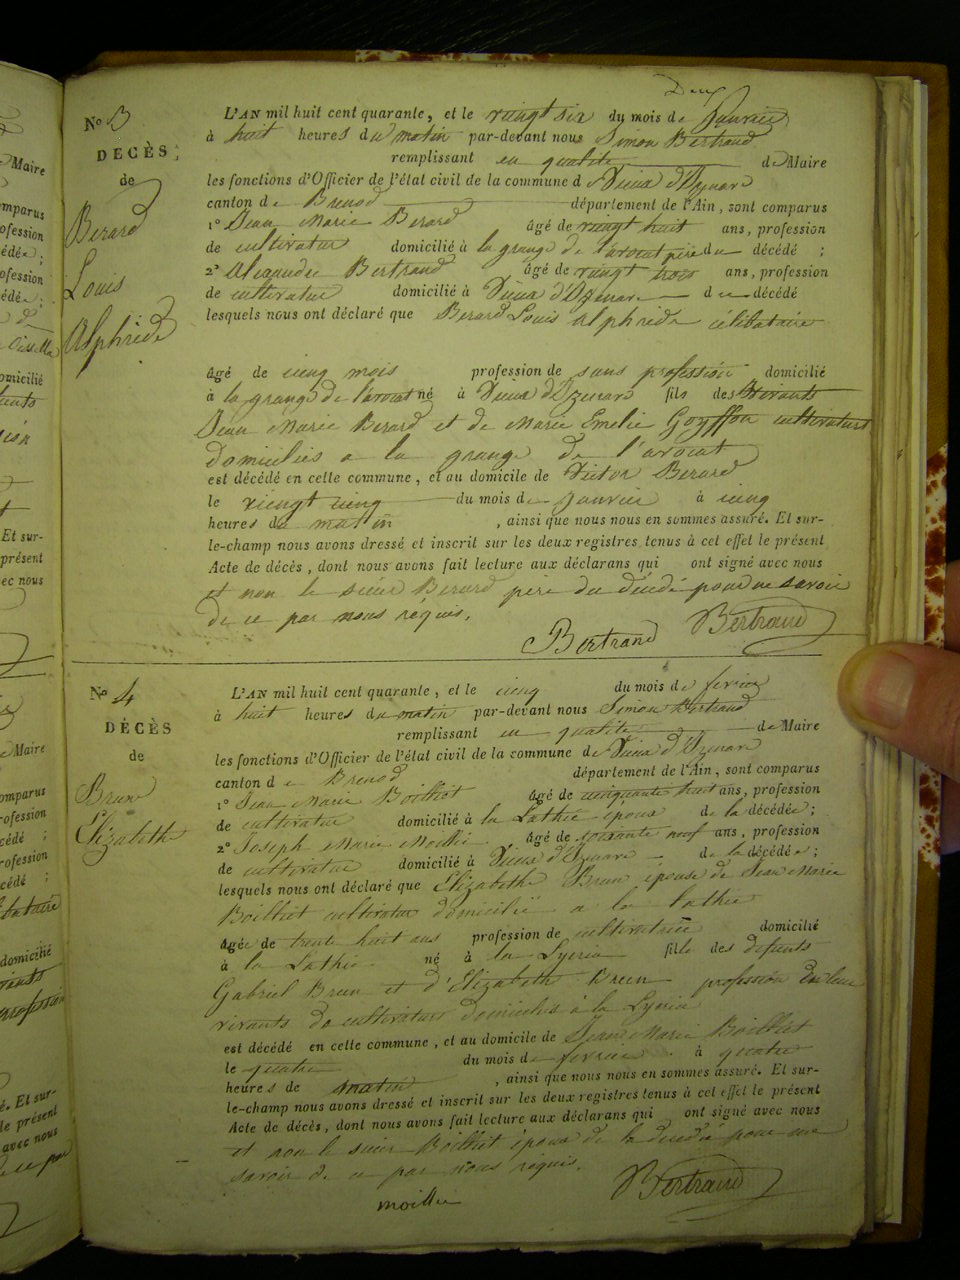 Deux
N.º 3
DECÈS
de
Berard
Louis
Alphrède
L'AN mil huit cent quarante, et le vingt six du mois de Janvier
à huit heures du matin par-devant nous Simon Bertrand
remplissant en qualité de Maire
les fonctions d'Officier de l'état civil de la commune de Vieux d'Izenave
canton de Brenod département de l'Ain, sont comparus
1º Jean Marie Berard âgé de vingt huit ans, profession
de cultivateur domicilié à la grange de l'avocat père du décédé ;
2º Alexandre Bertrand âgé de vingt trois ans, profession
de cultivateur domicilié à Vieux d'Izenave d décédé
lesquels nous ont déclaré que Berard Louis Alphrède célibataire
âgé de cinq mois profession de sans profession domicilié
à la grange de l'avocat né à Vieux d'Izenave fils des vivants
Jean Marie Berard et de Marie Emelie Goyffon cultivateurs
domiciliés a la grange de l'avocat
est décédé en cette commune, et au domicile de Victor Berard
le vingt cinq du mois de Janvier à cinq
heures du matin , ainsi que nous nous en sommes assuré. Et sur-
le-champ nous avons dressé et inscrit sur les deux registres tenus à cet effet le présent
Acte de décès, dont nous avons fait lecture aux déclarans qui ont signé avec nous
et non le sieur Berard père du décédé pour ne savoir
de ce par nous réquis.
Bertrand Bertrand
N.º 4
DÉCÈS
de
Brun
Elizabeth
L'AN mil huit cent quarante, et le cinq du mois de fevrier
à huit heures du matin par-devant nous Simon Bertrand
remplissant en qualité de Maire
les fonctions d'Officier de l'état civil de la commune de Vieux d'Izenave
canton de Brenod département de l'Ain, sont comparus
1º Jean Marie Boilliet âgé de cinquante huit ans, profession
de cultivateur domicilié à la Lathie époux de la décédée ;
2º Joseph Marie Moillie âgé de soixante neuf ans, profession
de cultivateur domicilié à Vieux d'Izenave de la décédée ;
lesquels nous ont déclaré que Elizabethe Brun épouse de Jean Marie
Boilliet cultivateur domicilié a la Lathie
âgée de trente huit ans profession de cultivatrice domicilié
à la Lathie né à la Lyeria fille des défunts
Gabriel Brun et d'Elizabeth Brun profession de leur
vivants de cultivateurs domiciliés à la Lyeria
est décédé en cette commune, et au domicile de Jean Marie Boilliet
le quatre du mois de fevrier à quatre
heures de matin , ainsi que nous nous en sommes assuré. Et sur-
le-champ nous avons dressé et inscrit sur les deux registres tenus à cet effet le présent
Acte de décès, dont nous avons fait lecture aux déclarans qui ont signé avec nous
et non le sieur Boilliet époux de la décédé pour ne
savoir de ce par nous réquis.
moillie Bertrand